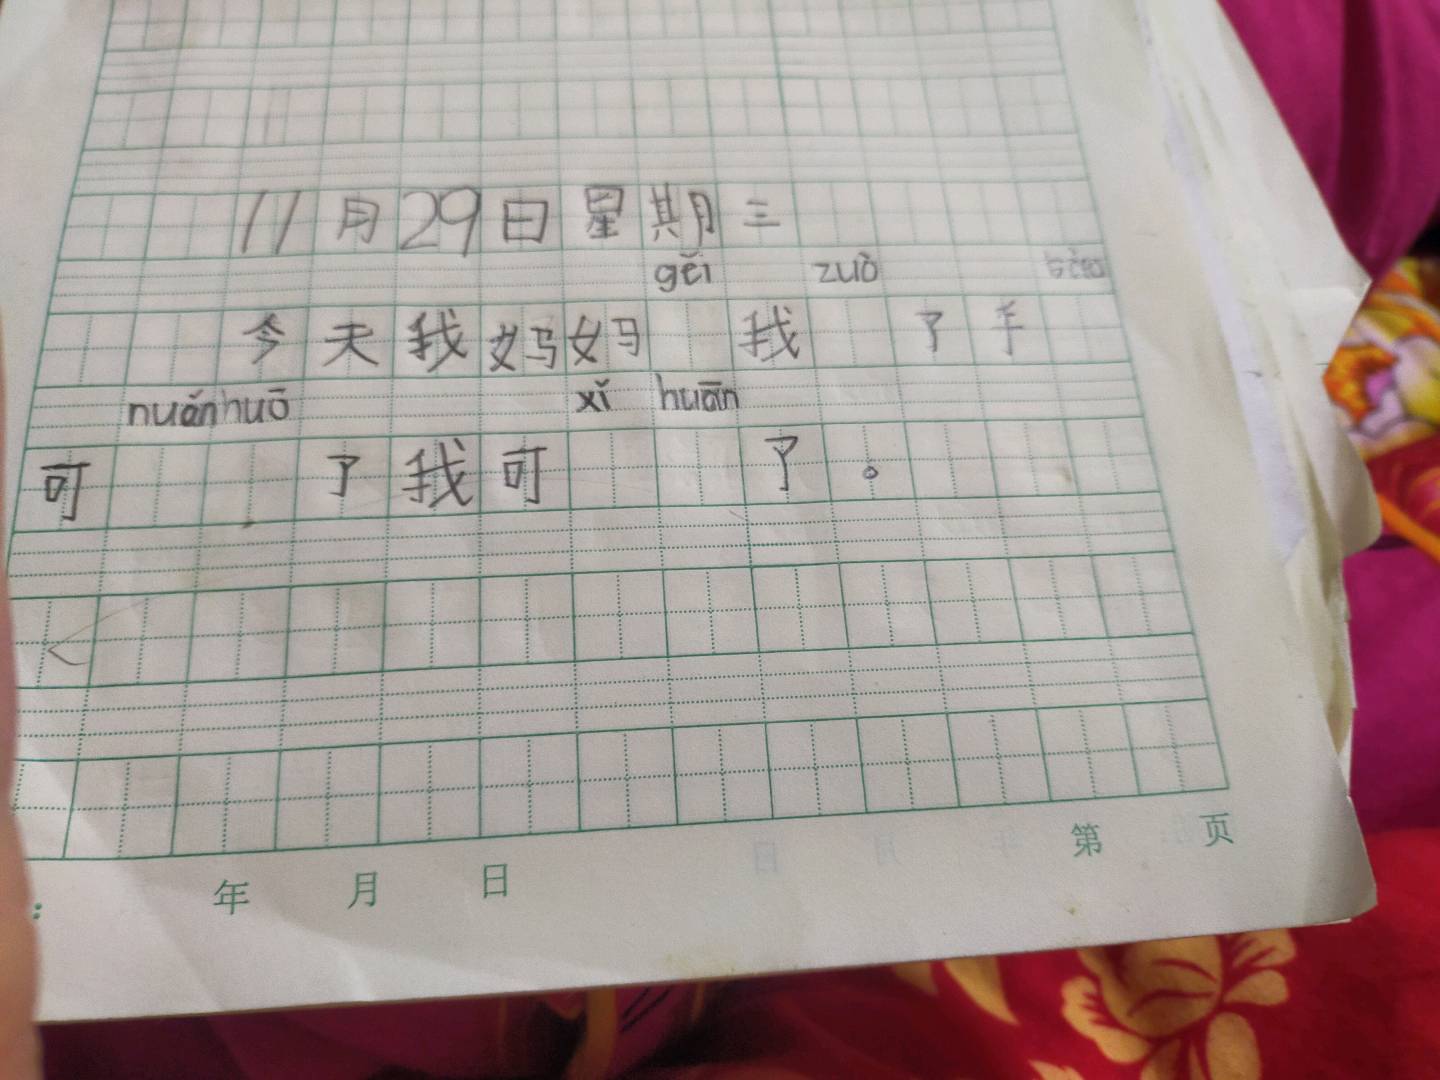 11月29日星期三
gěi zuò
今天我妈妈 我 了手
nuǎnhuō xǐ huān
可 了我可 了。
年 月 日 第 页